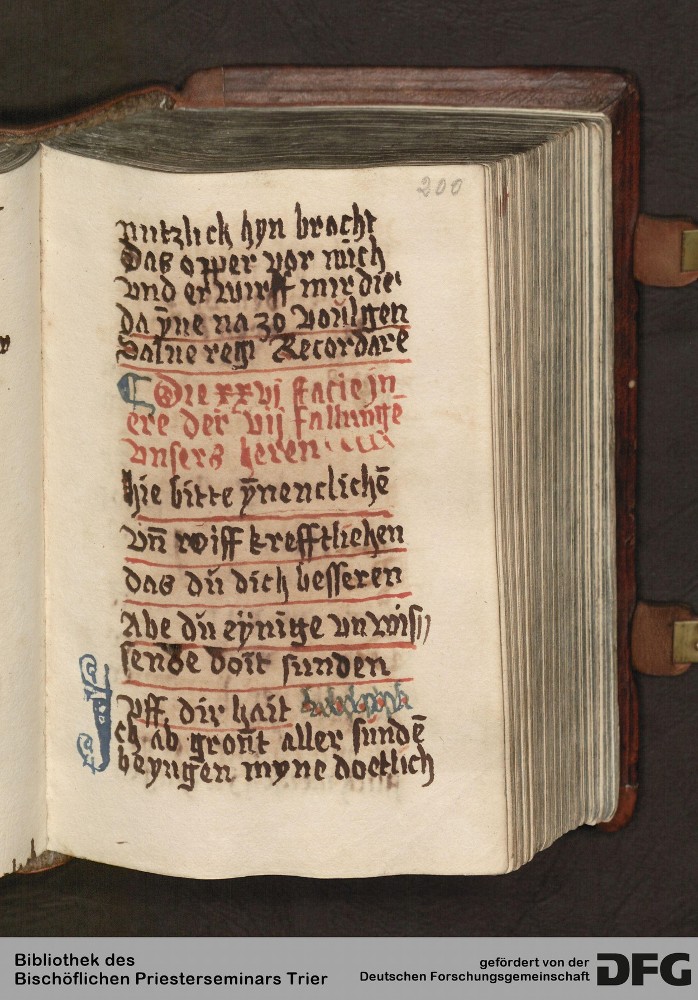 200
nutzlick hyn bracht
Das opper vor mich
vnd er wirff mir die
da ÿne na zo voulgen
Salue regi Recordare
Die xxvi statie jn
ere der vij fallungē
vnsers heren
hie bitte ÿnenclichē
vn̄ roiff krefftliehen
das dů dich besseren
Abe dů eÿnige vnwis
sende doit sunden
vff dir hait
Ich ab gront aller sundē
beyngen myne doetlich
Bibliothek des
Bischöflichen Priesterseminars Trier
gefördert von der
Deutschen Forschungsgemeinschaft DFG